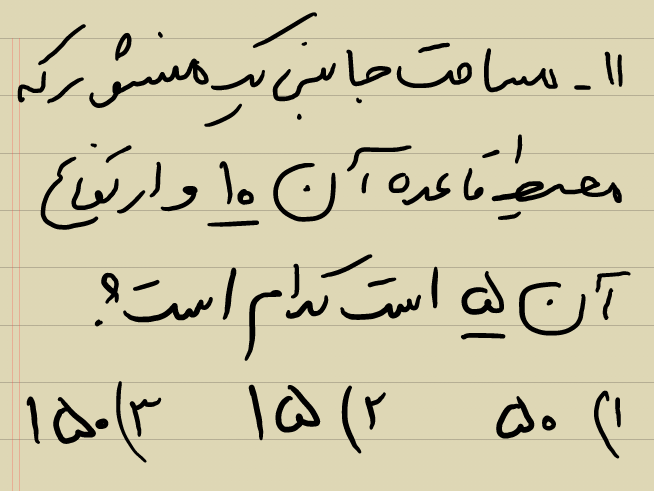 ۱۱- مساحت جانبی یک منشور که
محیط قاعده آن ۱۰ و ارتفاع
آن ۵ است کدام است؟
۱) ۵۰ ۲) ۱۵ ۳) ۱۵۰